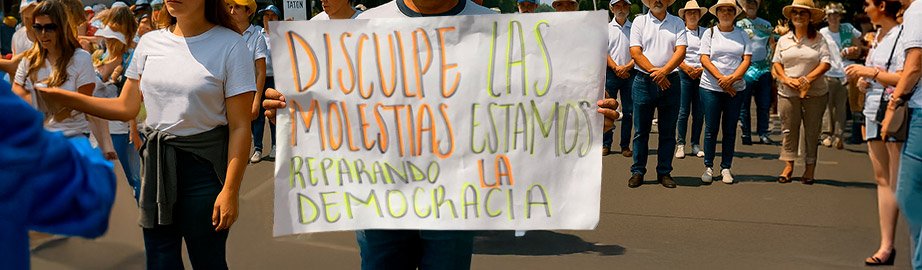 TATON
DISCULPE LAS
MOLESTIAS ESTAMOS
REPARANDO LA
DEMOCRACIA